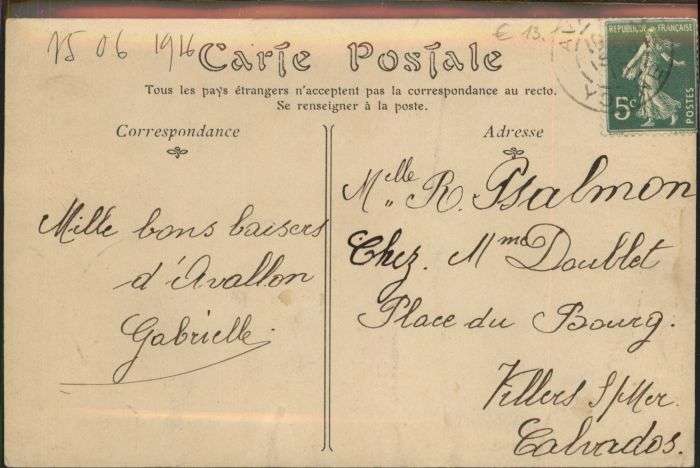 15 06 1916
€ 13.
Carte Postale
Tous les pays étrangers n'acceptent pas la correspondance au recto.
Se renseigner à la poste.
REPUBLIQUE FRANÇAISE
5c
POSTES
Correspondance
Mille bons baisers
d'Avallon
Gabrielle.
Adresse
Mlle R. Psalmon
Chez. Mme Doublet
Place du Bourg.
Villers S/Mer.
Calvados.